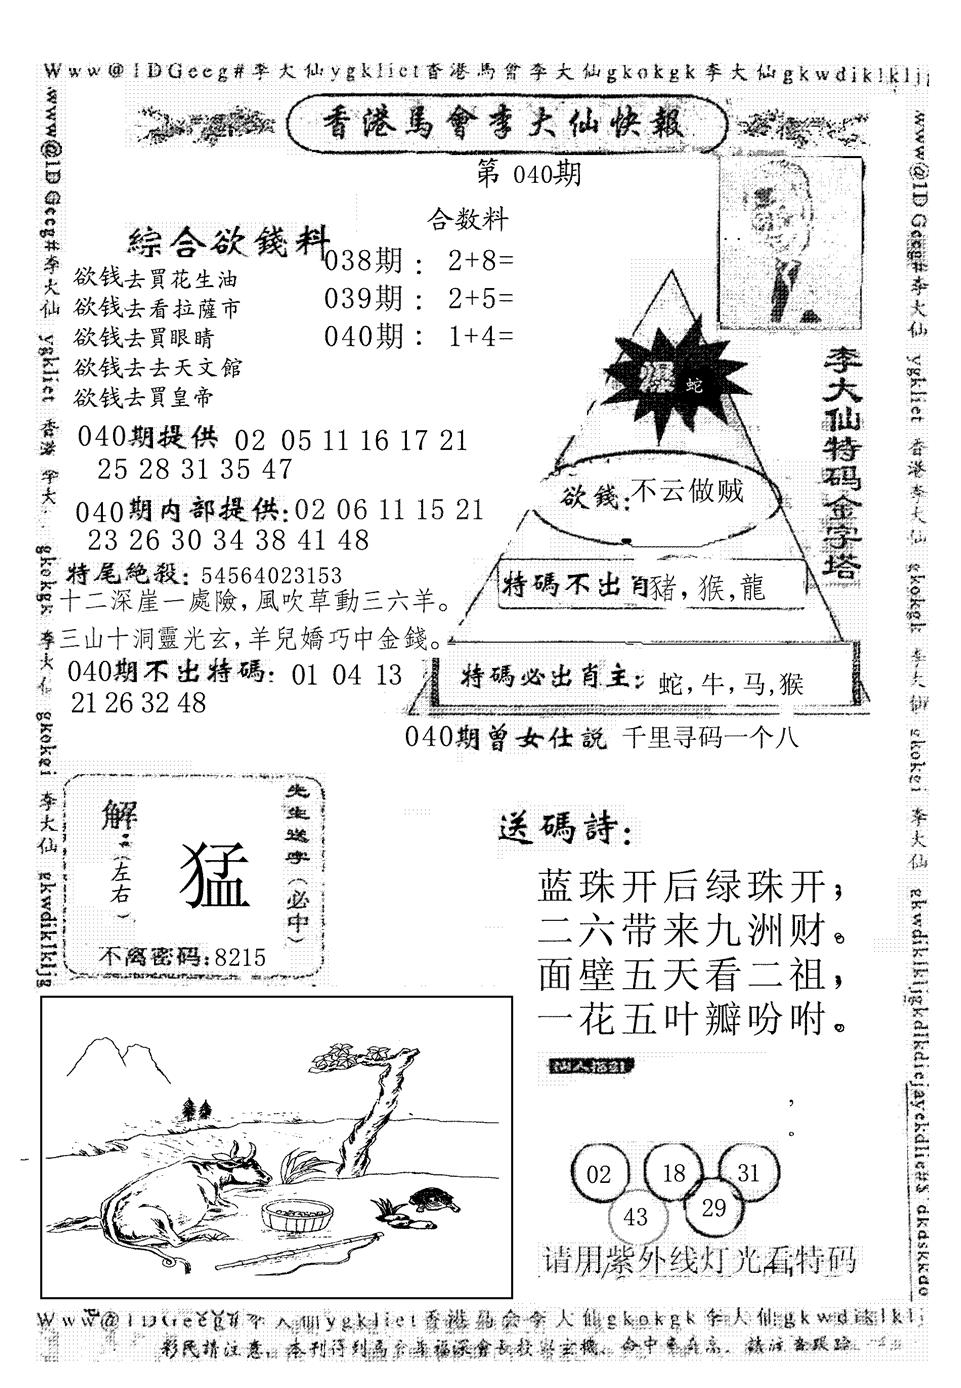 Www@1DGecg#李大仙ygklict香港馬會李大仙gkokgk李大仙gkwdiklkljg
香港馬會李大仙快報
第 040期
綜合欲錢料
欲钱去買花生油
欲钱去看拉薩市
欲钱去買眼晴
欲钱去去天文館
欲钱去買皇帝
合数料
038期： 2+8=
039期： 2+5=
040期： 1+4=
李大仙特码金字塔
爆 蛇
欲錢:不云做贼
特碼不出肖豬,猴,龍
特碼必出肖主: 蛇,牛,马,猴
040期提供 02 05 11 16 17 21
25 28 31 35 47
040期内部提供:02 06 11 15 21
23 26 30 34 38 41 48
特尾絶殺: 54564023153
十二深崖一處險,風吹草動三六羊。
三山十洞靈光玄,羊兒嬌巧中金錢。
040期不出特碼: 01 04 13
21 26 32 48
040期曾女仕説 千里寻码一个八
先生送字(必中)
解:(左右)
猛
不离密码:8215
送碼詩:
蓝珠开后绿珠开,
二六带来九洲财。
面壁五天看二祖,
一花五叶瓣吩咐。
,
。
02 18 31
43 29
请用紫外线灯光看特码
www@1DGecg#李大仙 ygklict 香港 李大 gkokgk 李大仙 gkokei 李大仙 gkwdiklkljg
www@1DGecg#李大仙 ygklict 香港李大仙 gkokgk 李大仙 gkokei 李大仙 gkwdiklkljgkdlkdiejayekdlie#$ dkdskkdo
Www@1DGecg#李大仙ygklict香港馬会李大仙gkokgk李大仙gkwdiklklj
彩民請注意。本刊得到馬会